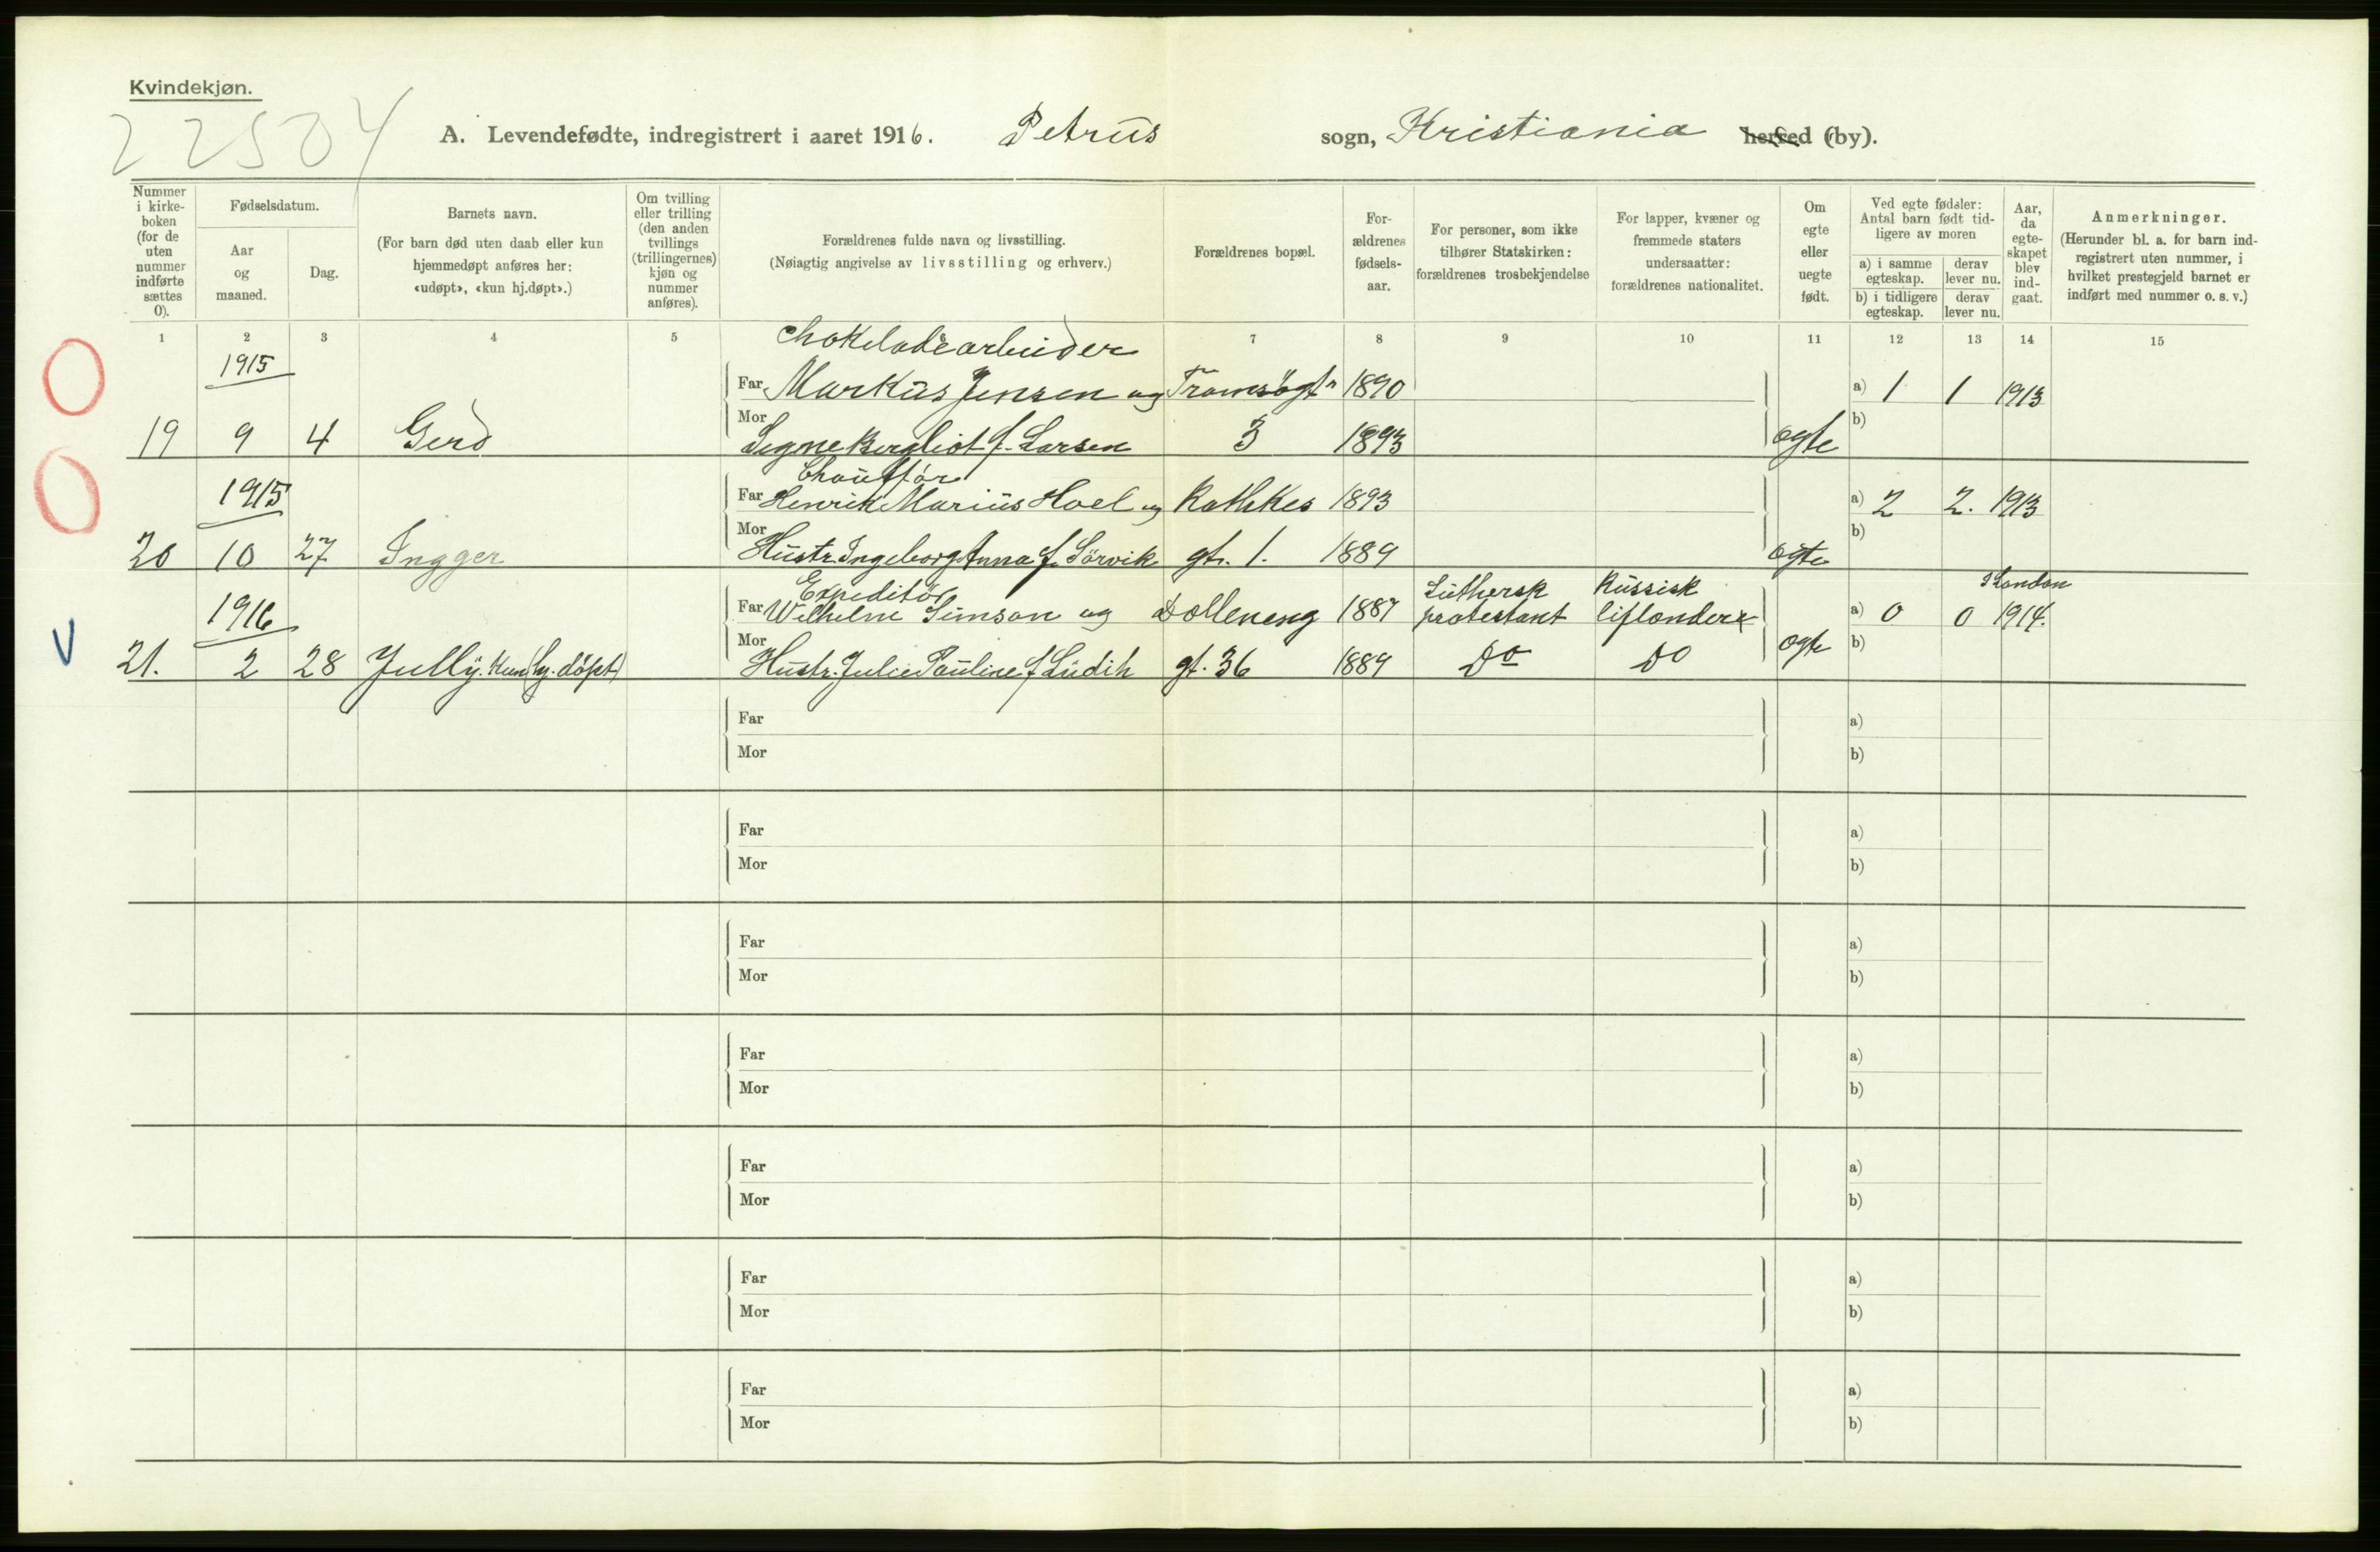 Kvindekjøn.
22504
A. Levendefødte, indregistrert i aaret 1916. Petrus sogn, Kristiania herred (by).
Nummer i kirke-boken (for de uten nummer indførte sættes 0).
Fødselsdatum.
Aar og maaned.
Dag.
Barnets navn.
(For barn død uten daab eller kun hjemmedøpt anføres her: «udøpt», «kun hj.døpt».)
Om tvilling eller trilling (den anden tvillings (trillingernes) kjøn og nummer anføres).
Forældrenes fulde navn og livsstilling.
(Nøiagtig angivelse av livsstilling og erhverv.)
Forældrenes bopæl.
For-ældrenes fødsels-aar.
For personer, som ikke tilhører Statskirken: forældrenes trosbekjendelse
For lapper, kvæner og fremmede staters undersaatter: forældrenes nationalitet.
Om egte eller uegte født.
Ved egte fødsler: Antal barn født tid-ligere av moren
a) i samme egteskap.
derav lever nu.
b) i tidligere egteskap.
derav lever nu.
Aar, da egte-skapet blev ind-gaat.
Anmerkninger.
(Herunder bl. a. for barn ind-registrert uten nummer, i hvilket prestegjeld barnet er indført med nummer o. s. v.)
1 2 3 4 5 7 8 9 10 11 12 13 14 15
Chokoladearbeider
1915
Far Markus Jensen og Tromsøgt 1890 a) 1 1 1913
19 9 4 Gerd Mor Signe Bergliot f. Larsen 3 1893 egte b)
Chauffør
1915
Far Henrik Marius Hoel og Rathkes 1893 a) 2 2. 1913
20 10 27 Ingger Mor Hustr. Ingeborg Anna f. Sörvik gt. 1. 1889 egte b)
Expeditör Luthersk Russisk I London
1916
Far Wilhelm Simson og Dælleneng 1887 protestant liflænder a) 0 0 1914.
21. 2 28 Jully. Kun (hj. döpt) Mor Hustr. Julie Pauline f Lüdik gt. 36 1889 Do Do egte b)
Far a)
Mor b)
Far a)
Mor b)
Far a)
Mor b)
Far a)
Mor b)
Far a)
Mor b)
Far a)
Mor b)
Far a)
Mor b)